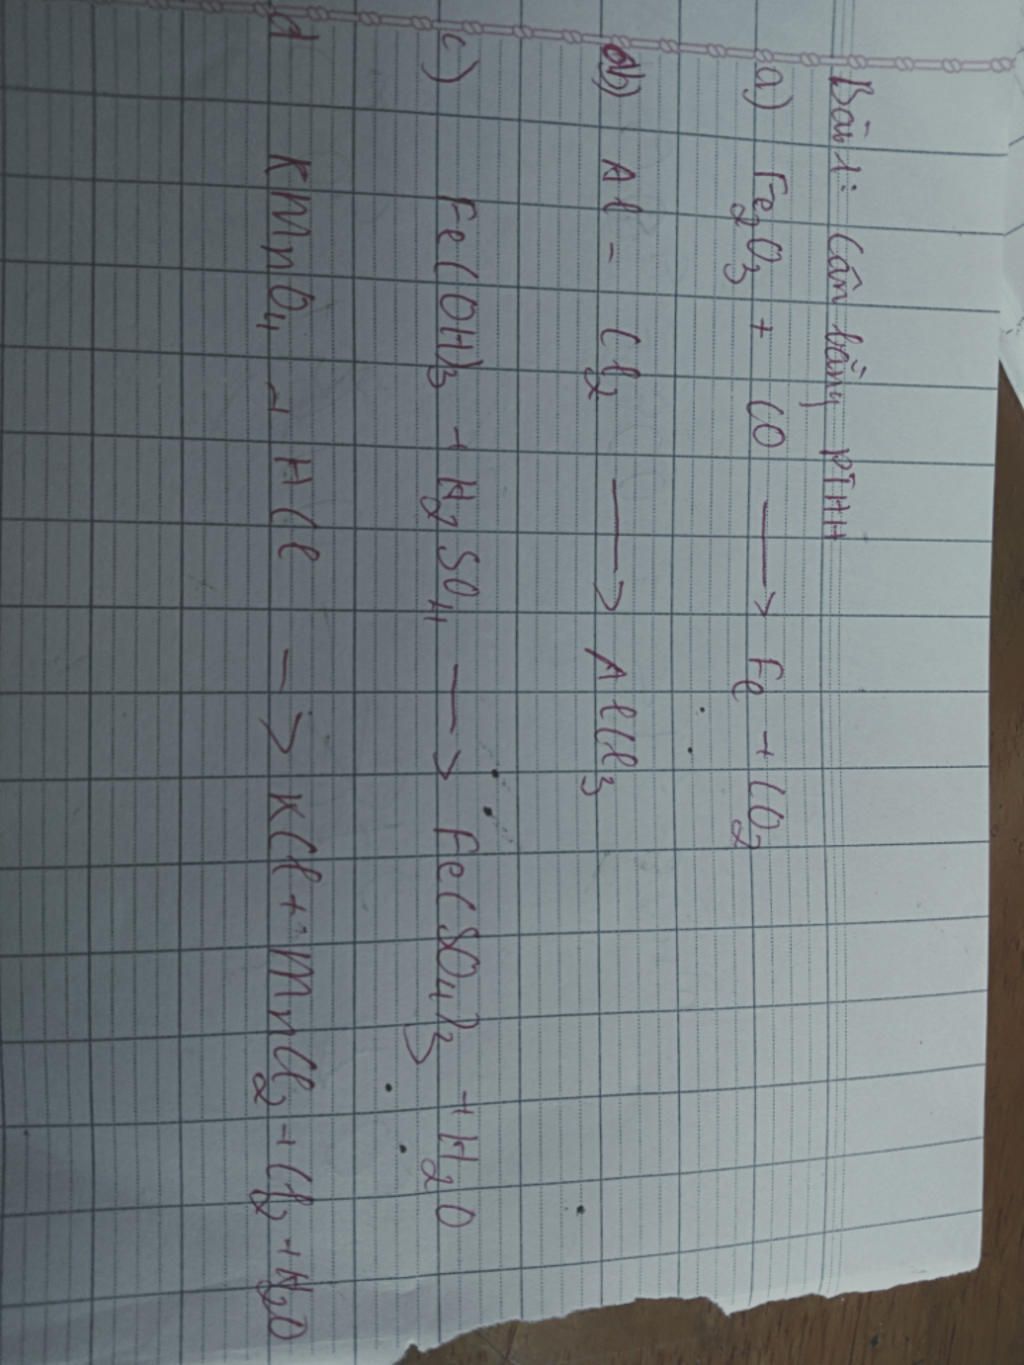 Bài 1: Cân bằng PTHH
a) Fe2O3 + CO ⟶ Fe + CO2
b) Al - Cl2 ⟶ AlCl3
c) Fe(OH)3 + H2SO4 ⟶ Fe(SO4)3 + H2O
d KMnO4 + HCl ⟶ KCl + MnCl2 + Cl2 + H2O